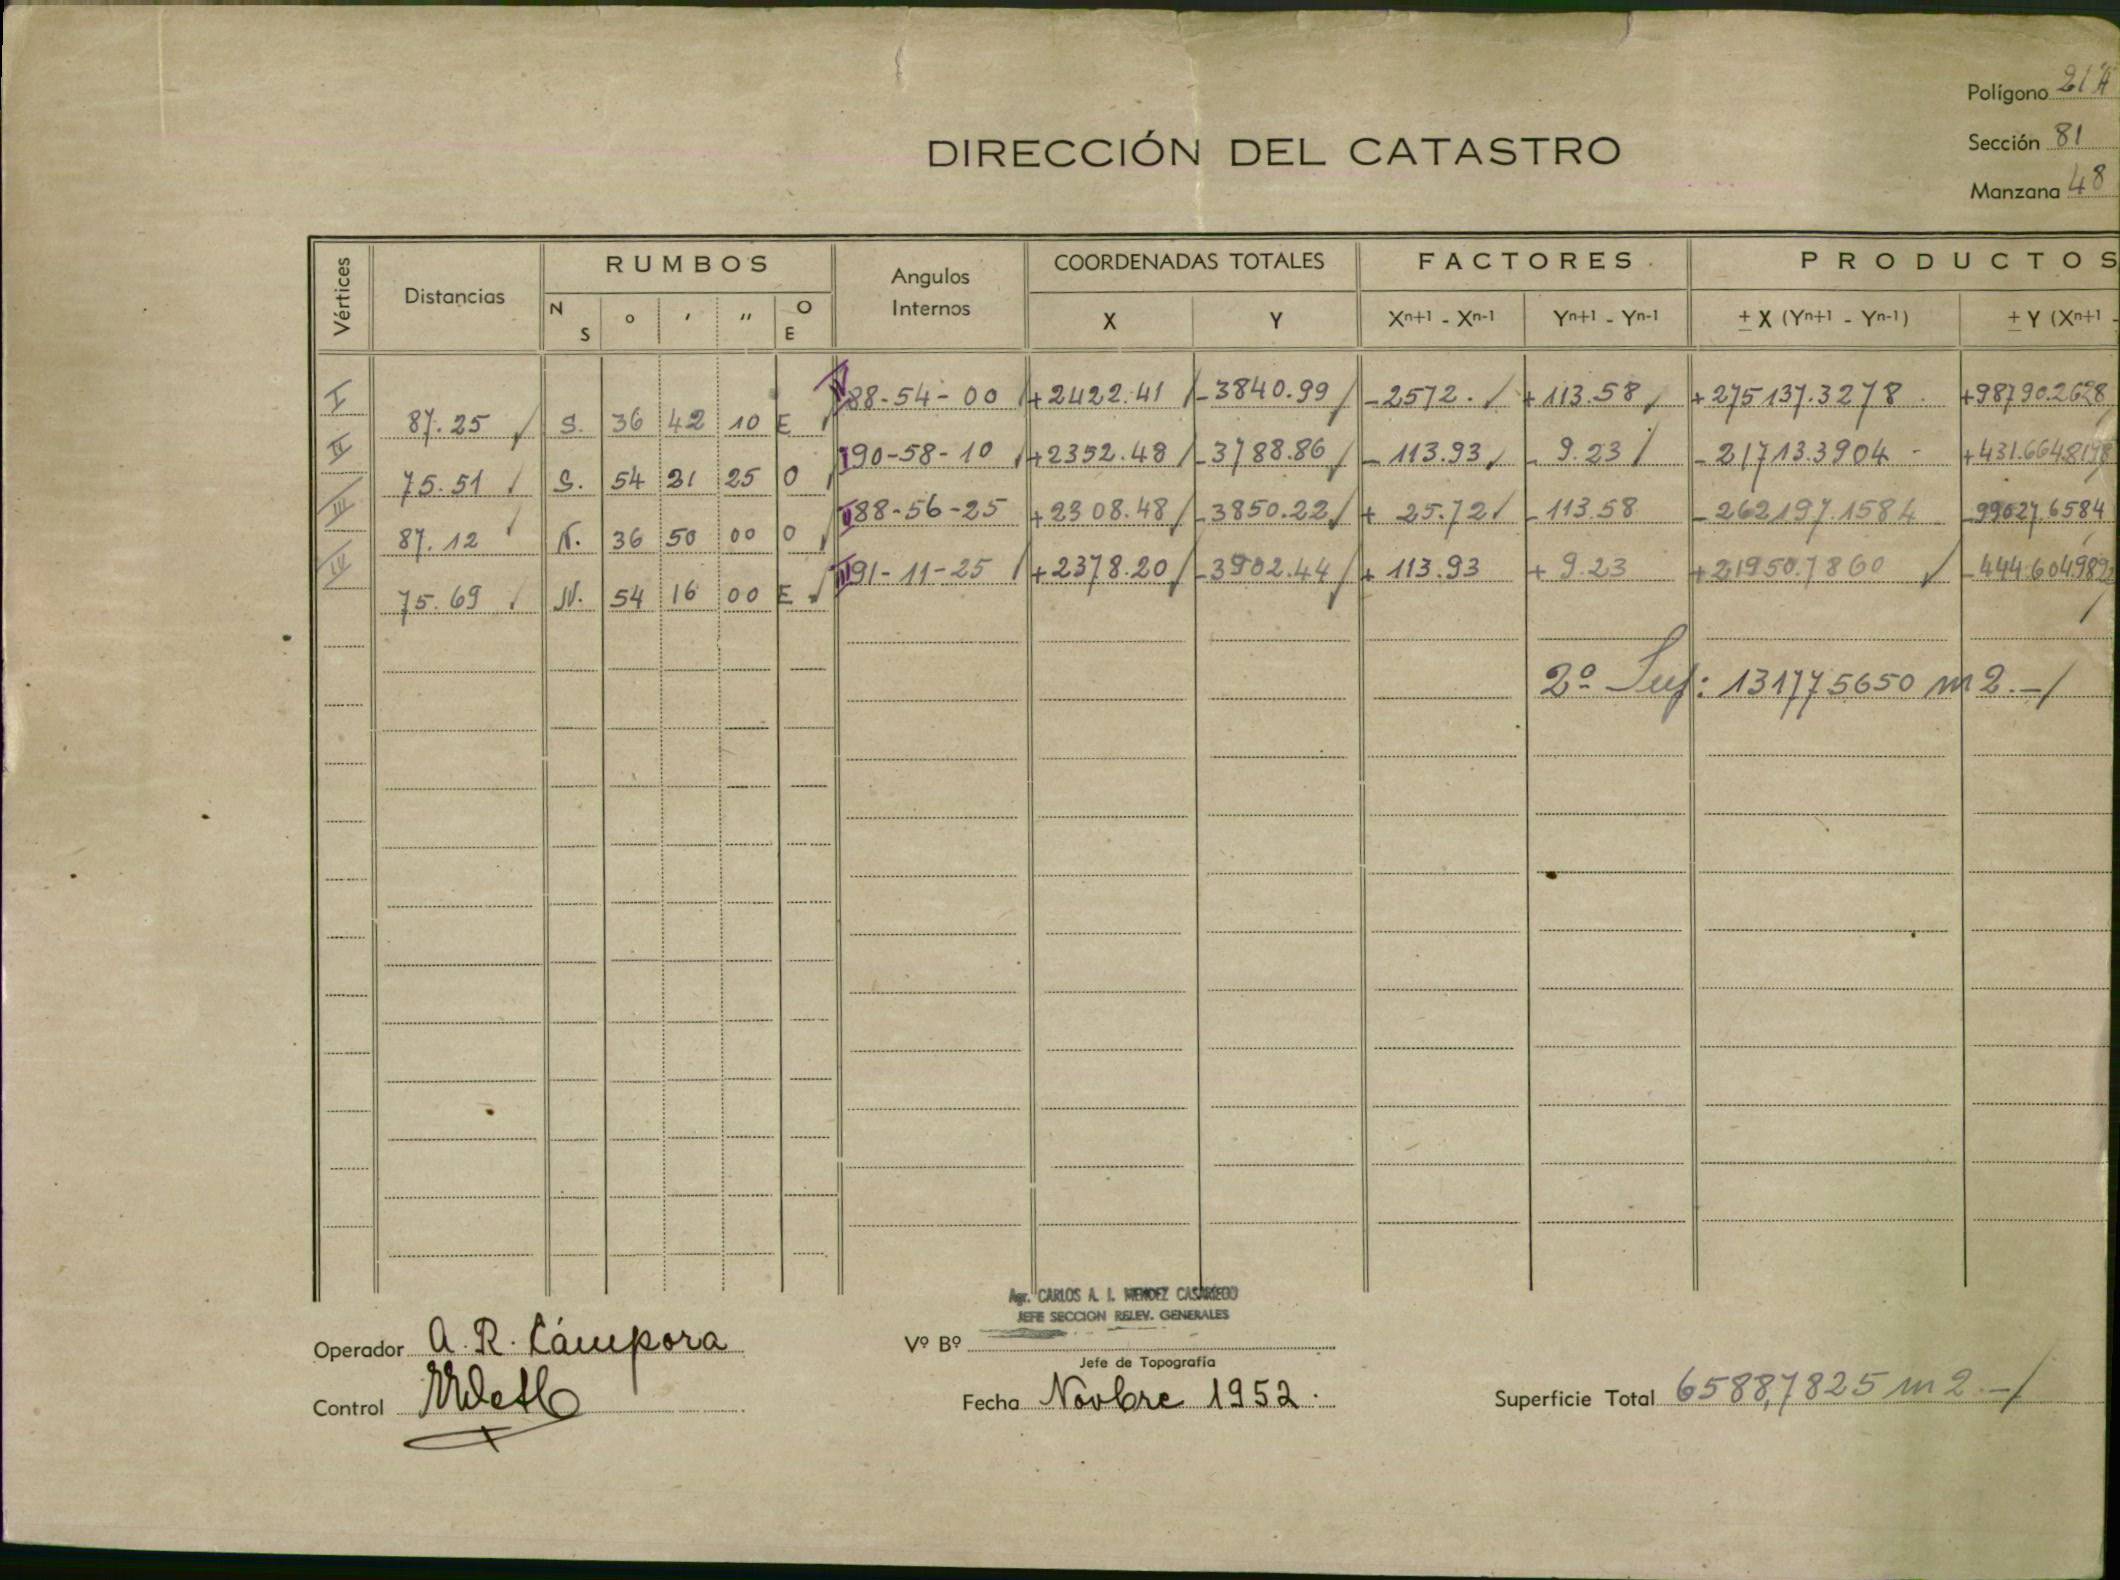 Polígono 21A
DIRECCIÓN DEL CATASTRO
Sección 81
Manzana 48
Vértices Distancias RUMBOS Angulos Internos COORDENADAS TOTALES FACTORES PRODUCTOS
N S ° ' " O E X Y Xn+1 - Xn-1 Yn+1 - Yn-1 ± X (Yn+1 - Yn-1) ± Y (Xn+1 -
I 88-54-00 +2422.41 -3840.99 -2572. +113.58 +275137.3278 +98790.2628
87.25 S. 36 42 10 E
II 90-58-10 +2352.48 -3788.86 -113.93 -9.23 -21713.3904 +431.6648198
75.51 S. 54 21 25 O
III 88-56-25 +2308.48 -3850.22 +25.72 -113.58 -262197.1584 -99027 6584
87.12 N. 36 50 00 O
IV 91-11-25 +2378.20 -3902.44 +113.93 +9.23 +21950.7860 -444.604989
75.69 N. 54 16 00 E
2ª Sup: 131775650 m2.-
Agr. CARLOS A. I. MENDEZ CASARIEGO
JEFE SECCION RELEV. GENERALES
Operador A. R. Cámpora Vº Bº
Jefe de Topografía
Control Fecha Novbre 1952. Superficie Total 6588,7825 m2.-